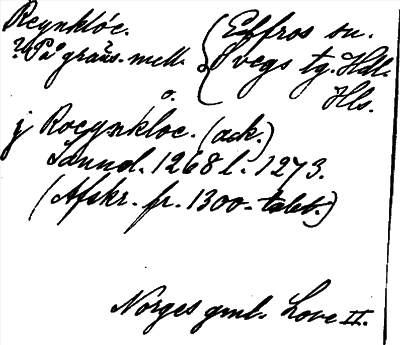 Reynklóc.
? På gräns. mell. { Elfros sn.
o. { vegs tg. Hdl.
Hls.
j Rocynkloc. (ack.)
Sannol. 1268 l. 1273.
(Afskr. fr. 1300-talet.)
Norges gml. Love II.